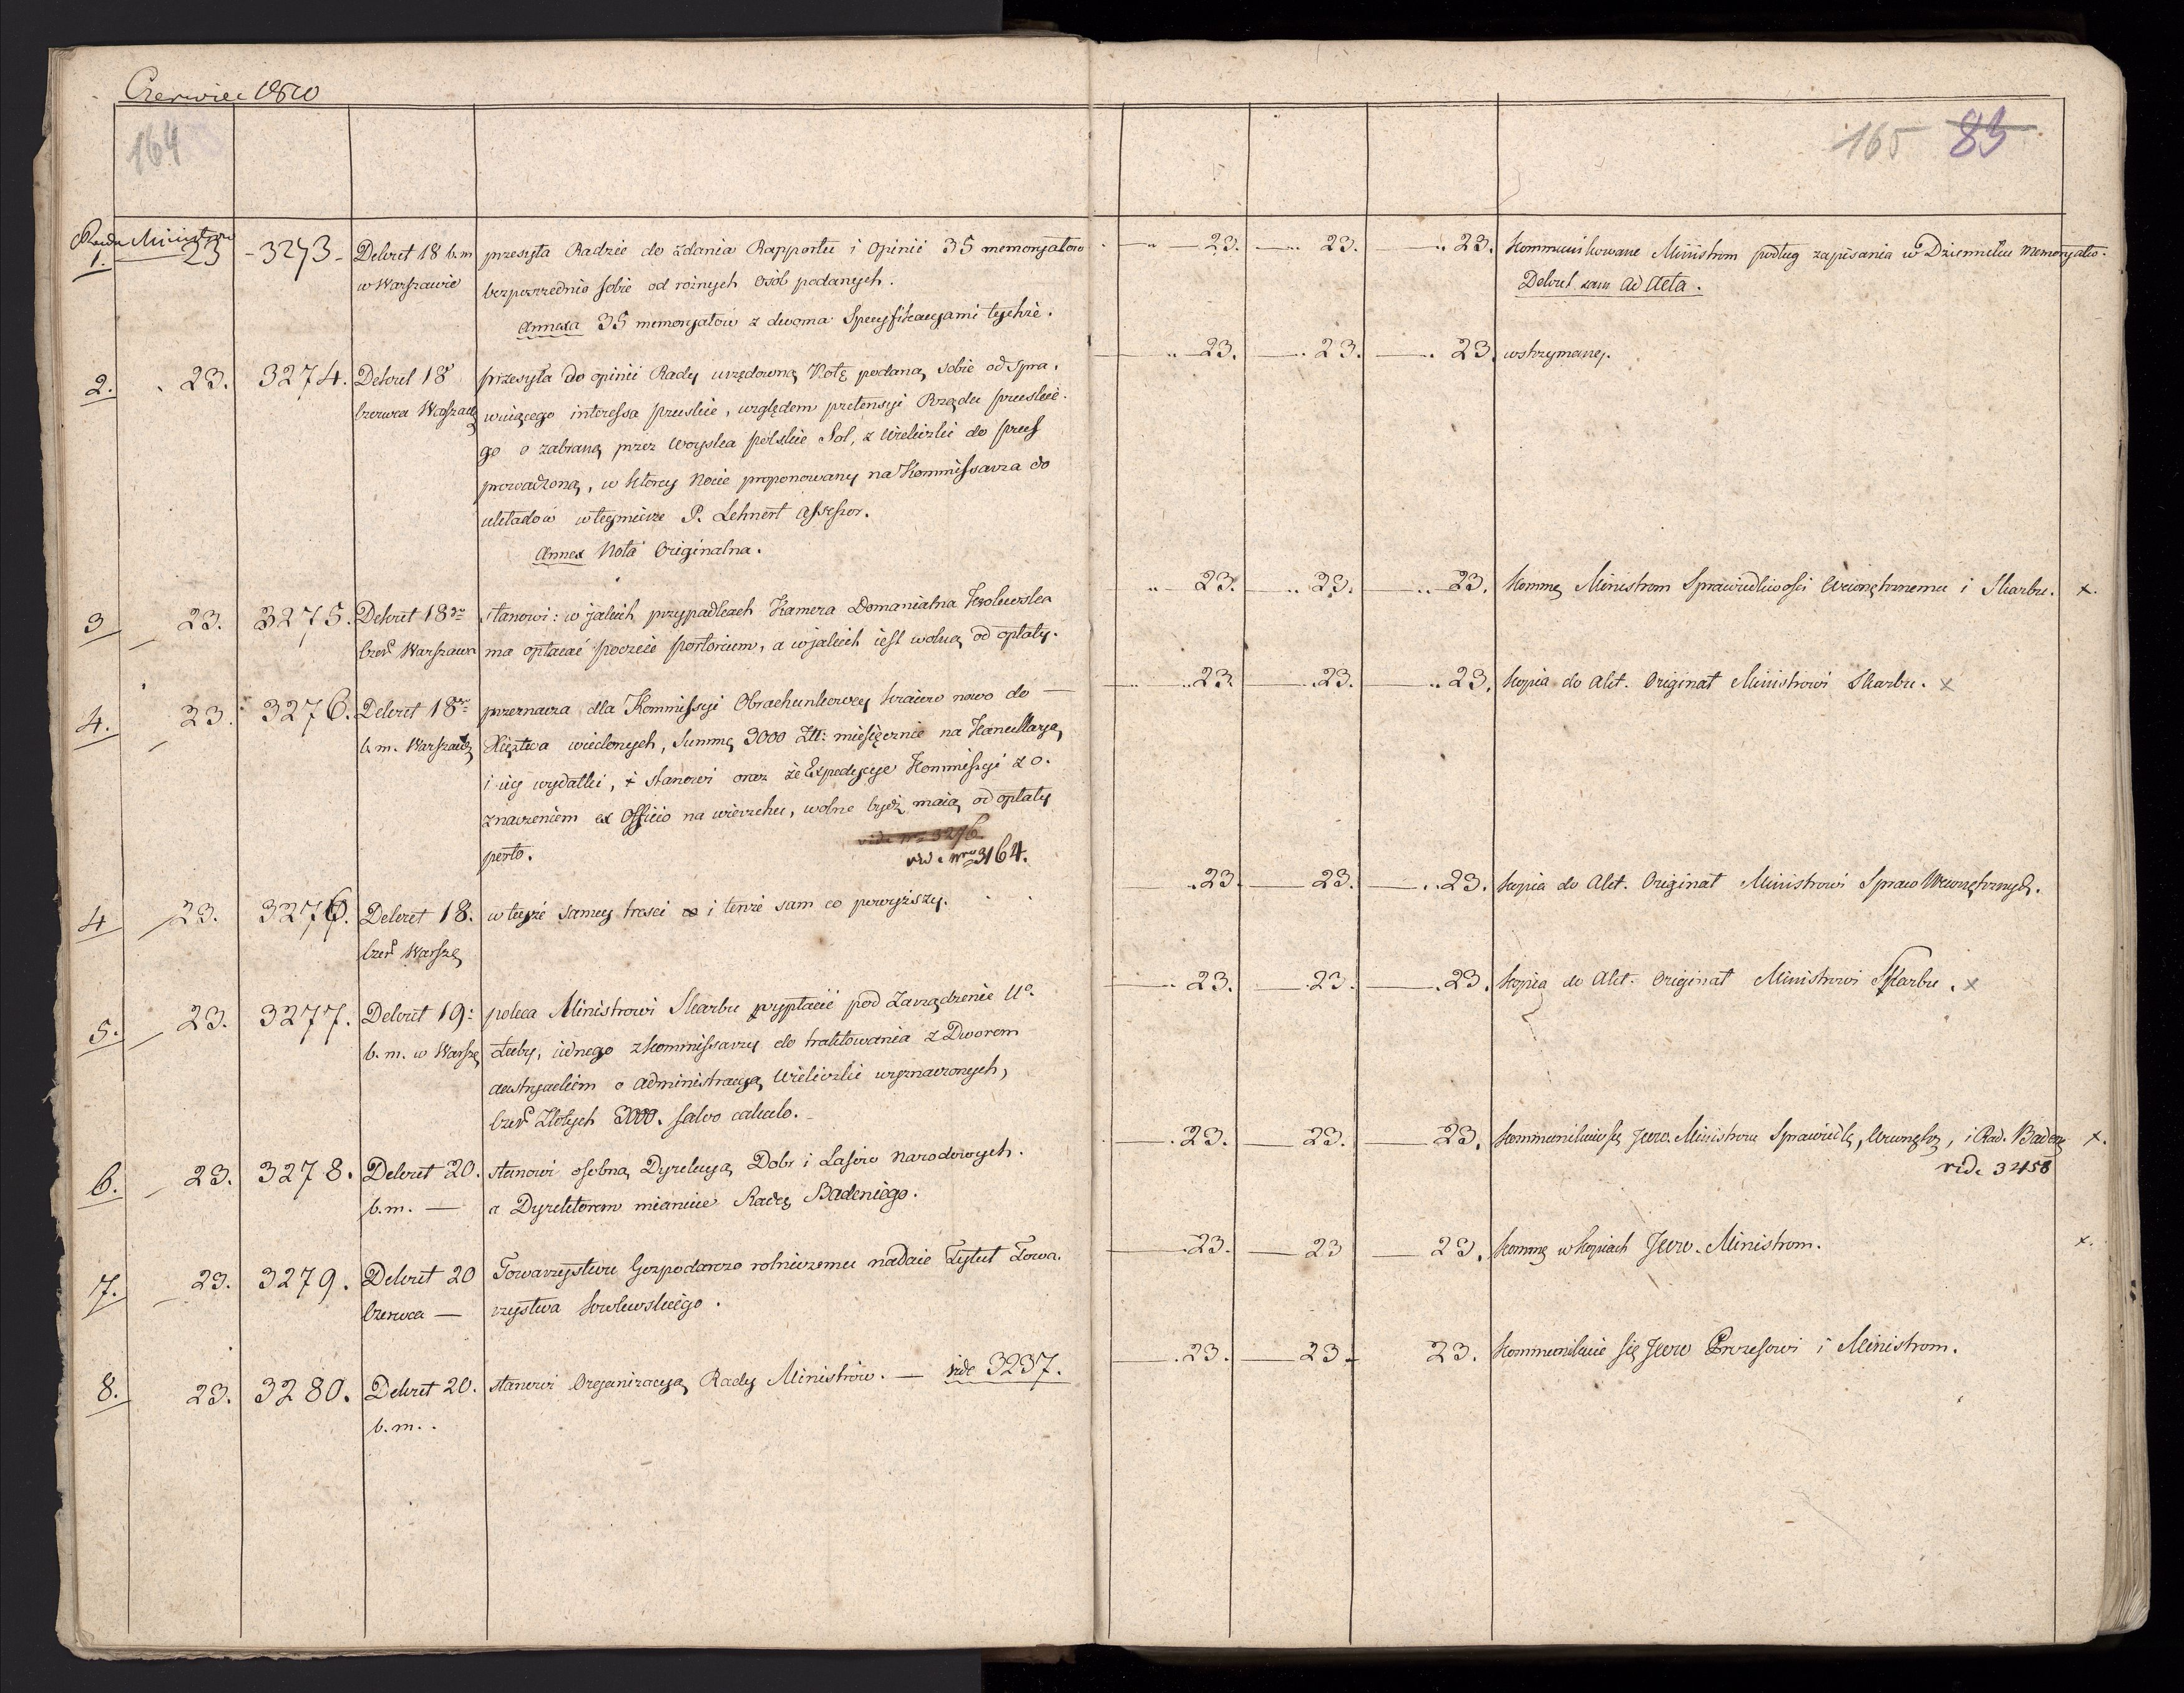 Czerwiec 1810
164
165 83
Rada Ministrow
1. 23 - 3273 - Dekret 18 b.m przesyła Radzie do zdania Rapportu i Opinii 35 memoryałow
w Warszawie bezpośrzednio sobie od rożnych Osób podanych.
Annexa 35 memoryałow z dwoma Specyfikacyami tychże.
23. 23. 23. Kommunikowane Ministrom podług zapisania w Dzienniku Memoryałow.
Dekret sam ad Acta.
2. 23. 3274. Dekret 18 przesyła do opinii Rady urzędową Notę podaną sobie od Spra.
Czerwca Warszawa wuiącego interessa pruskie, względem pretensyi Rządu pruskie.
go o zabraną przez Woyska polskie Sol, z Wieliczki do Pruss
prowadzoną, w ktorey Nocie proponowany na Kommissarza do
układów w tey mierze P. Lehnert Assessor.
Annex Nota Originalna.
23. 23. 23. wstrzymaney.
3 23. 3275. Dekret 18go stanowi: w jakich przypadkach Kamera Domanialna Krolewska
Czer Warszawa ma opłacać poczcie portorium, a w jakich iest wolną od opłaty.
23. 23. 23. Kommę Ministrom Sprawiedliwości Wewnętrznemu i Skarbu. x.
4. 23. 3276. Dekret 18go przeznacza dla Kommissyi Obrachunkowey kraiow nowo do
b.m. Warszawa Xięztwa wcielonych, Summę 3000 Złł: miesięcznie na Kancellaryą
i iey wydatki, + stanowi oraz że Expedycye Kommissyi z o.
znaczeniem ex Officio na wierzchu, wolne bydź maią od opłaty
porto. vide Nro 3276
vide Nro 3164.
23. 23. 23. Kopia do Akt. Originał Ministrowi Skarbu. x
4 23. 3276. Dekret 18. w teyże samey tresci i tenże sam co powyższy.
Czer Warszę
23. 23. 23. Kopia do Akt. Originał Ministrowi Spraw Wewnętrznych.
5. 23. 3277. Dekret 19: poleca Ministrowi Skarbu wypłacić pod Zarządzenie Uo.
b.m. w Warszę Łuby, iednego z kommissarzy do traktowania z Dworem
austryackim o administracyą Wieliczki wyznaczonych,
Czer Złotych 3000. salvo calculo.
23. 23. 23. Kopia do Akt. Originał Ministrowi Skarbu. x
6. 23. 3278. Dekret 20. stanowi osobną Dyrekcyą Dobr i Lasow Narodowych.
b.m. — a Dyrektorem mianuie Radcę Badeniego.
23. 23. 23. Kommunikuie się Jww. Ministrowi Sprawiedlę, Wewnętrz, i Rad. Badenę x.
vide 3458
7. 23. 3279. Dekret 20 Towarzystwu Gospodarczo rolniczemu nadaie Tytuł Towa.
Czerwca — rzystwa krolewskiego.
23. 23 23. Kommę w kopiach Jww. Ministrom. x.
8. 23. 3280. Dekret 20. stanowi Organizacyą Rady Ministrow. — vide 3237.
b.m.
23. 23. 23. Kommunikuie się Jww Prezesowi i Ministrom.